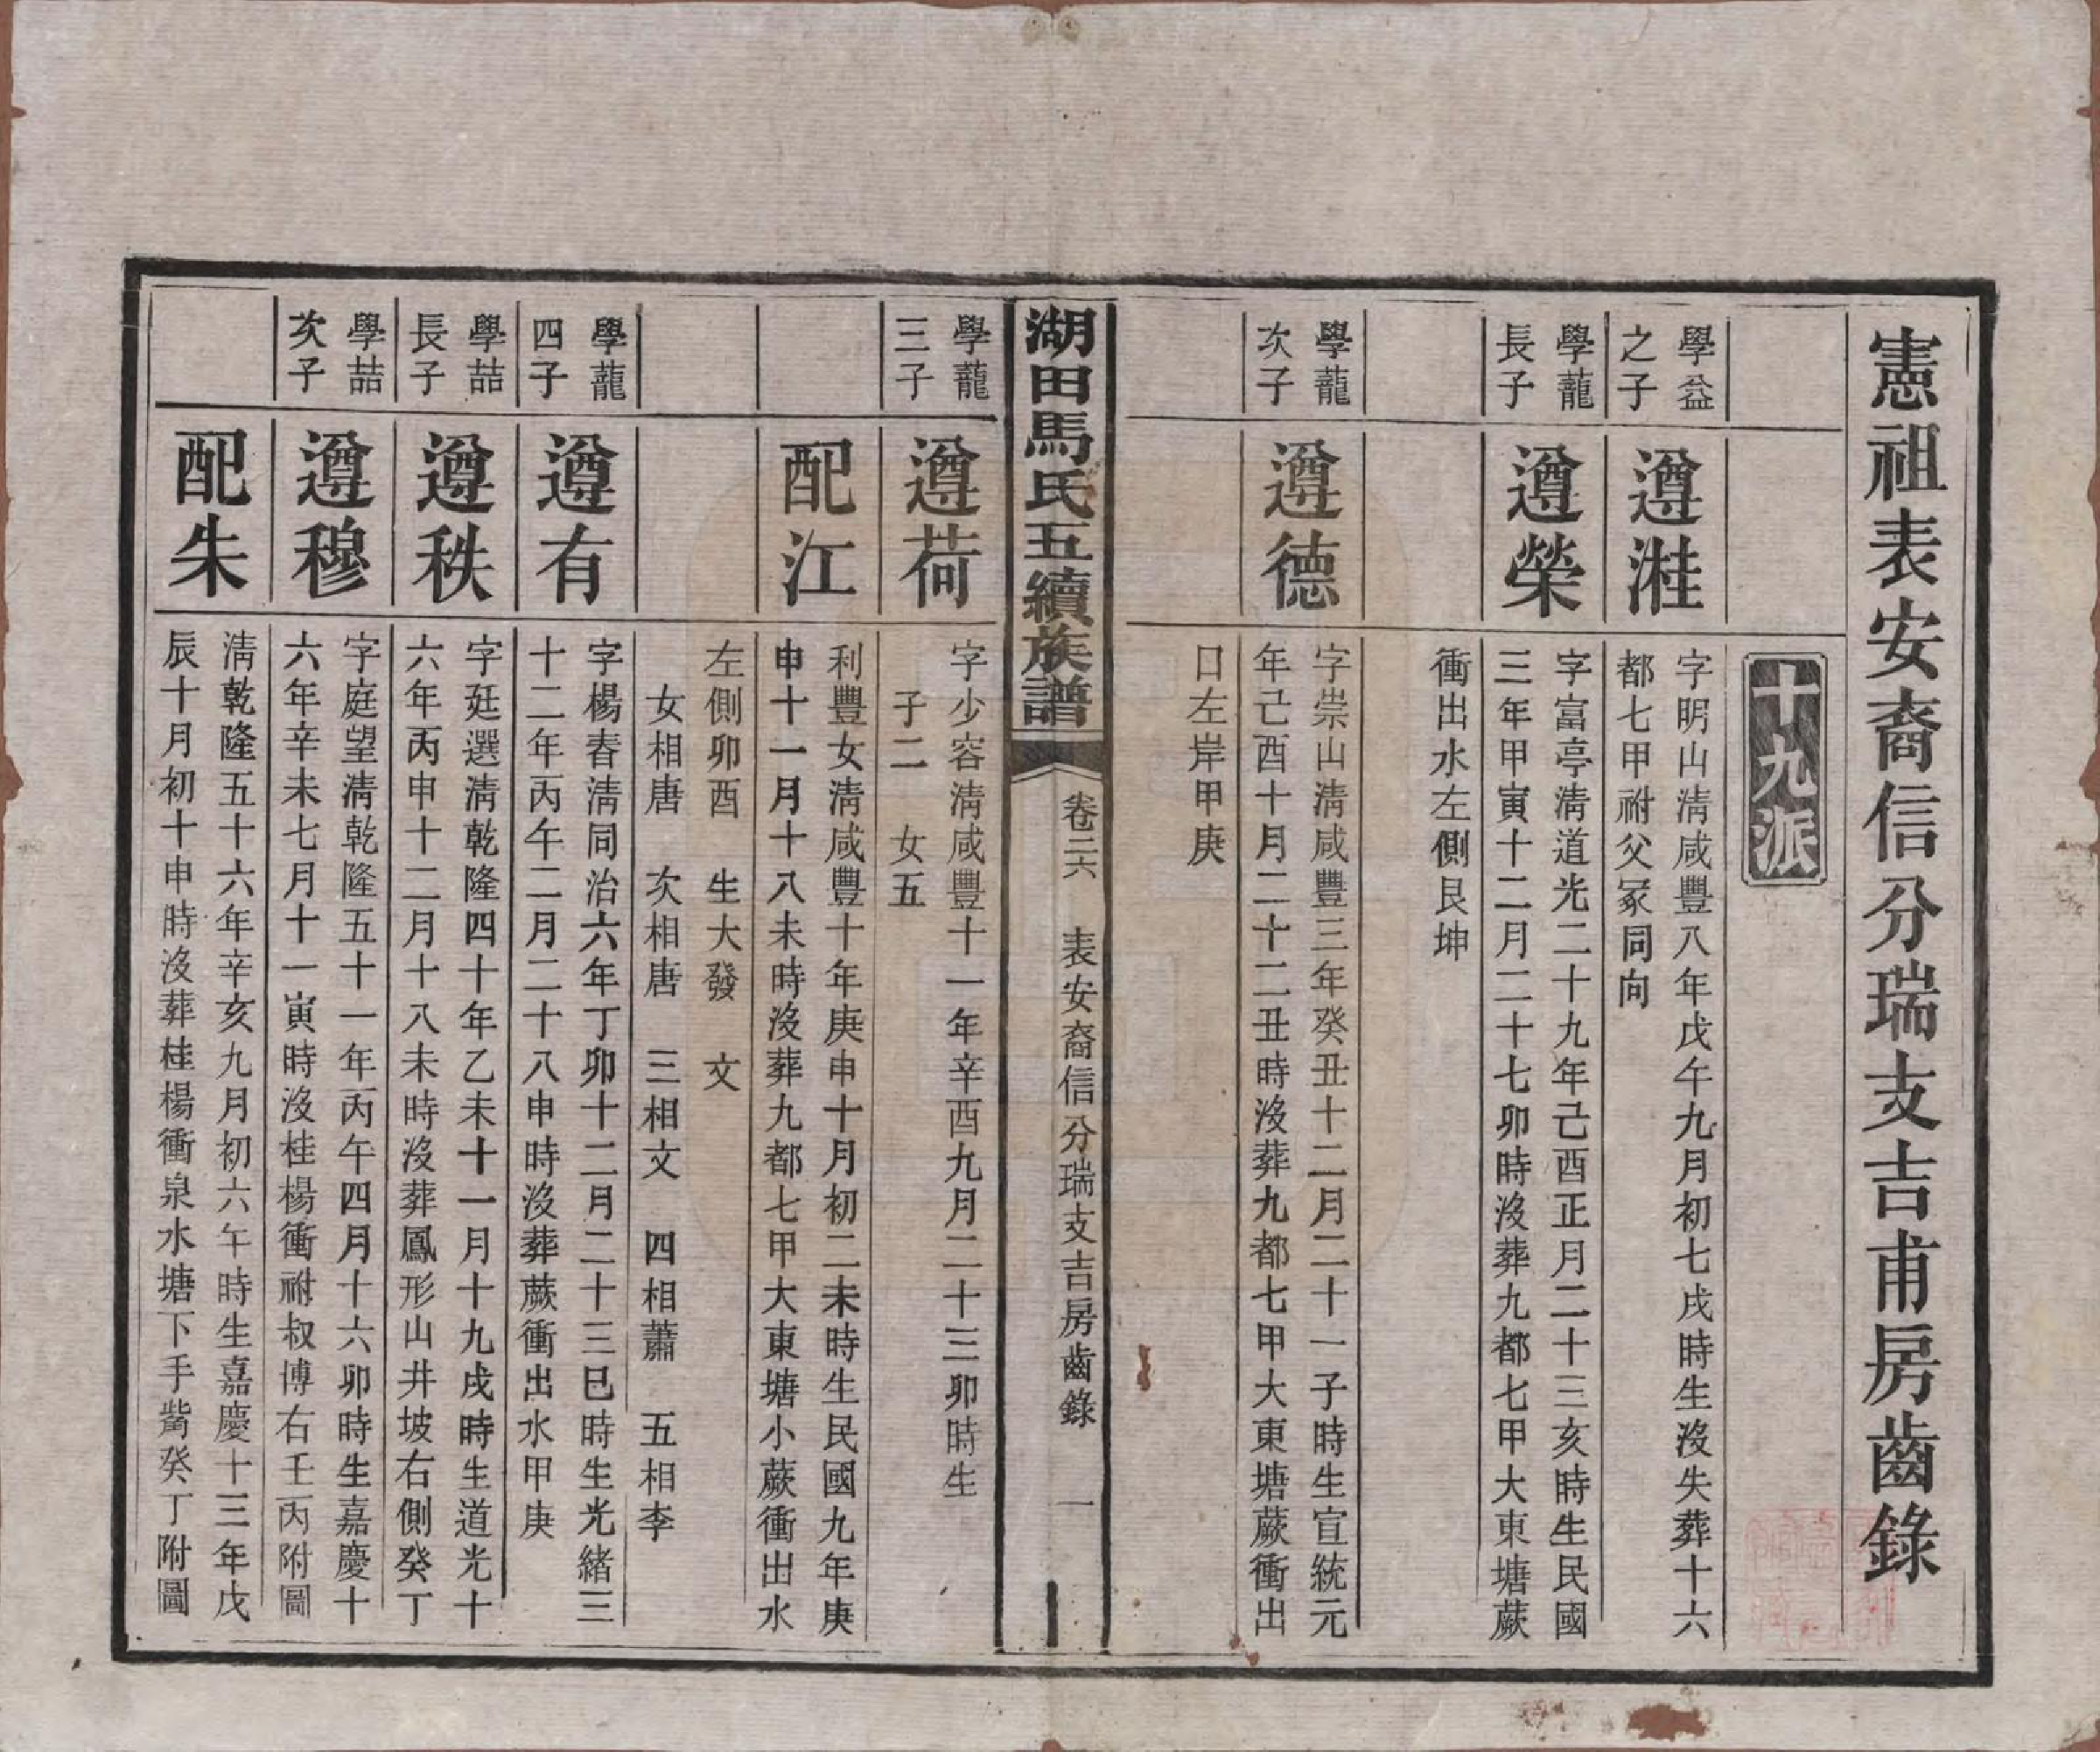 憲祖表安裔信分瑞支吉甫房齒錄
十九派
學益之子
遵溎
字明山清咸豐八年戊午九月初七戌時生沒失葬十六
都七甲祔父冢同向
學龍長子
遵榮
字富亭清道光二十九年己酉正月二十三亥時生民國
三年甲寅十二月二十七卯時沒葬九都七甲大東塘蕨
衝出水左側艮坤
學龍次子
遵德
字崇山清咸豐三年癸丑十二月二十一子時生宣統元
年己酉十月二十二丑時沒葬九都七甲大東塘蕨衝出
口左岸甲庚
湖田馬氏五續族譜
卷二六
表安裔信分瑞支吉房齒錄
一
學龍三子
遵荷
字少容清咸豐十一年辛酉九月二十三卯時生
子二 女五
配江
利豐女清咸豐十年庚申十月初二未時生民國九年庚
申十一月十八未時沒葬九都七甲大東塘小蕨衝出水
左側卯酉 生大發 文
女相唐 次相唐 三相文 四相蕭 五相李
學龍四子
遵有
字楊春清同治六年丁卯十二月二十三巳時生光緒三
十二年丙午二月二十八申時沒葬蕨衝出水甲庚
學喆長子
遵秩
字廷選清乾隆四十年乙未十一月十九戌時生道光十
六年丙申十二月十八未時沒葬鳳形山井坡右側癸丁
學喆次子
遵穆
字庭望清乾隆五十一年丙午四月十六卯時生嘉慶十
六年辛未七月十一寅時沒桂楊衝祔叔博右壬丙附圖
配朱
清乾隆五十六年辛亥九月初六午時生嘉慶十三年戊
辰十月初十申時沒葬桂楊衝泉水塘下手觜癸丁附圖